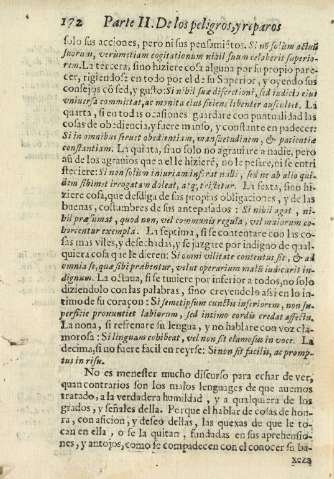 172 Parte II. De los peligros, y reparos
solo sus acciones, pero ni sus pensamiẽtos. Si nõ solum actuũ
suorum, verumetiam cogitationum nihil suum celaberit superio-
rem. La tercera, si no hiziere cosa alguna por su propio pare-
cer, rigiendose en todo por el de su Superior, y oyendo sus
consejos cõ sed, y gusto: Si nihil suæ discretioni, sed iudicio eius
vniuersa committat, ac monita eius sitiens libenter auscultet. La
quarta, si en todas ocasiones guardare con puntualidad las
cosas de obediencia, y fuere manso, y constante en padecer:
Si in omnibus seruet obedientiam, mansuetudinem, & patientiæ
constantiam. La quinta, si no solo no agrauiare a nadie, pero
aũ de los agrauios que a el le hizierẽ, no le pesare, ni se entri
steciere: Si non solum iniuriam inferat nulli, sed ne ab alio qui-
dem sibimet irrogatam doleat, atq; tristetur. La sexta, si no hi-
ziere cosa, que desdiga de sus propias obligaciones, y de las
buenas, costumbres de sus antepassados: Si nihil agat, ni-
bil præsumat, quod non, vel communis regula, vel maiorum co-
hortentur exempla. La septima, si se contentare con las co-
sas mas viles, y desechadas, y se juzgare por indigno de qual-
quiera cosa que le dieren: Si omni vilitate contentus sit, & ad
omnia se, quæ sibi præbentur, velut operarium malũ iudicarit in-
dignum. La octaua, si se tuuiere por inferior a todos, no solo
diziendolo con las palabras, sino creyendolo assi en lo in-
timo de su coraçon: Si semetipsum cunctis inferiorem, non su-
perficie pronuntiet labiorum, sed intimo cordis credat affectu.
La nona, si refrenare su lengua, y no hablare con voz cla-
morosa: Si linguam cohibeat, vel non sit clamosus in voce. La
decima, si no fuere facil en reyrse: Si non sit facilis, ac promp-
tus in risu.
No es menester mucho discurso para echar de ver,
quan contrarios son los malos lenguages de que auemos
tratado, a la verdadera humildad, y a qualquiera de los
grados, y señales della. Porque el hablar de cosas de hon-
ra, con aficion, y deseo dellas, las quexas de que le to-
can en ella, o se la quitan, fundadas en sus aprehensio-
nes, y antojos, como se compadecen con el conocer su ba-
xeza